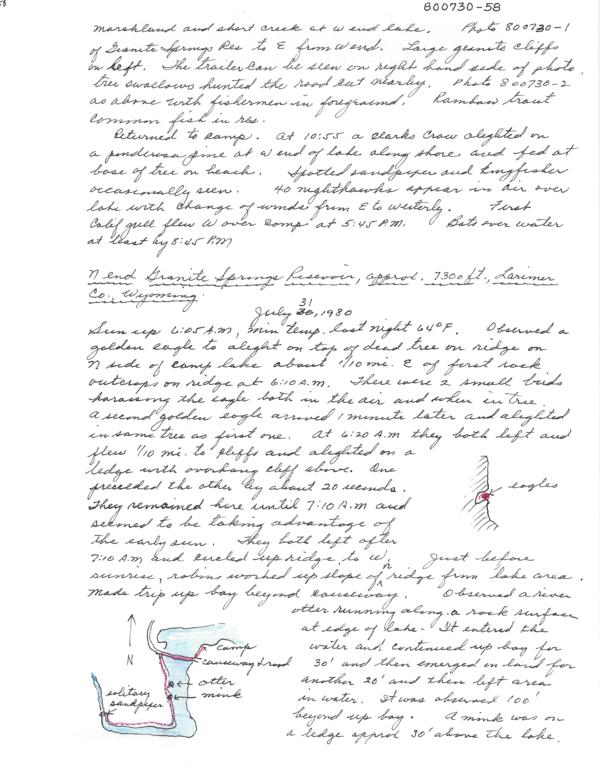 58
800730-58
marshland and short creek at W end lake. Photo 800730-1
of Granite Springs Res to E from W end. Large granite cliffs
on left. The trailer can be seen on right hand side of photo,
tree swallows hunted the road cut nearby. Photo 800730-2
as above with fishermen in foreground. Rainbow trout
common fish in res.
Returned to camp. At 10:55 a Clarks Crow alighted on
a ponderosa pine at W end of lake along shore and fed at
base of tree on beach. Spotted sandpiper and kingfisher
occasionally seen. 40 nighthawks appear in air over
lake with change of winds from E to westerly. First
Calif gull flew W over camp at 5:45 P.M. Bats over water
at least by 8:45 PM
N end Granite Springs Reservoir, approx. 7300 ft., Larimer
Co., Wyoming.
July 31, 1980
Sun up 6:05 A.M., min temp. last night 64°F. Observed a
golden eagle to alight on top of dead tree on ridge on
N side of camp lake about 1/10 mi. E of first rock
outcrops on ridge at 6:10 A.M. There were 2 small birds
harassing the eagle both in the air and when in tree.
A second golden eagle arrived 1 minute later and alighted
in same tree as first one. At 6:20 A.M they both left and
flew 1/10 mi. to cliffs and alighted on a
ledge with overhang cliff above. One
preceded the other by about 20 seconds.
They remained here until 7:10 A.M and
seemed to be taking advantage of
the early sun. They both left after
7:10 A.M and circled up ridge to W. Just before
sunrise, robins worked up slope of N ridge from lake area.
Made trip up bay beyond causeway. Observed a river
otter running along a rock surface
at edge of lake. It entered the
water and continued up bay for
30' and then emerged on land for
another 20' and then left area
in water. It was observed 100'
beyond up bay. A mink was on
a ledge approx 30' above the lake.
eagles
N
camp
causeway & road
otter
mink
solitary
sandpiper